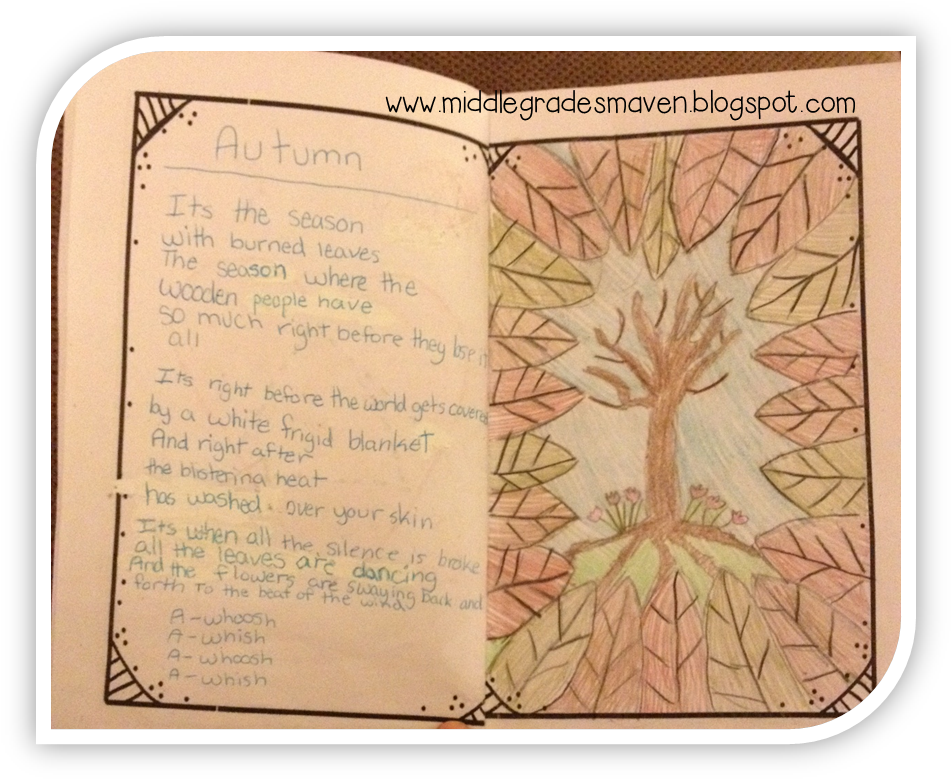 www.middlegradesmaven.blogspot.com
Autumn
Its the season
with burned leaves
The season where the
wooden people have
so much right before they lose it
all
Its right before the world gets covered
by a white frigid blanket
And right after
the blistering heat
has washed over your skin
Its when all the silence is broke
all the leaves are dancing
And the flowers are swaying back and
forth To the beat of the wind
A-whoosh
A-whish
A-whoosh
A-whish